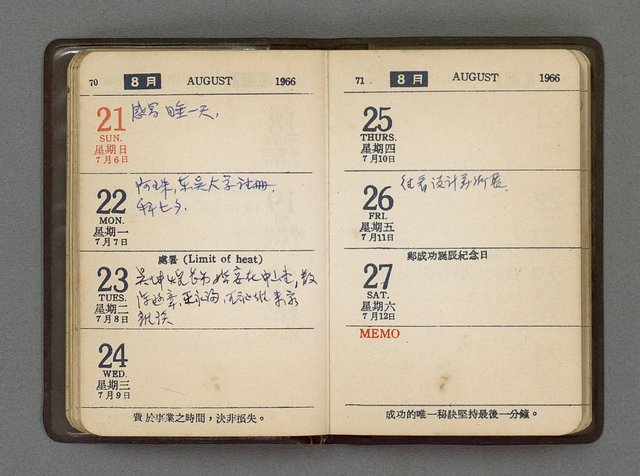 70 8月 AUGUST 1966
21 感冒 睡一天,
SUN.
星期日
7月6日
22 阿珠, 東吳大學註冊,
MON. 看七夕.
星期一
7月7日
處暑 (Limit of heat)
23 吳坤煌 結婚在中山堂,
TUES.
星期二
7月8日
24
WED.
星期三
7月9日
費於事業之時間,決非損失。
71 8月 AUGUST 1966
25
THURS.
星期四
7月10日
26 往看設計美術展.
FRI.
星期五
7月11日
鄭成功誕辰紀念日
27
SAT.
星期六
7月12日
MEMO
成功的唯一秘訣堅持最後一分鐘。